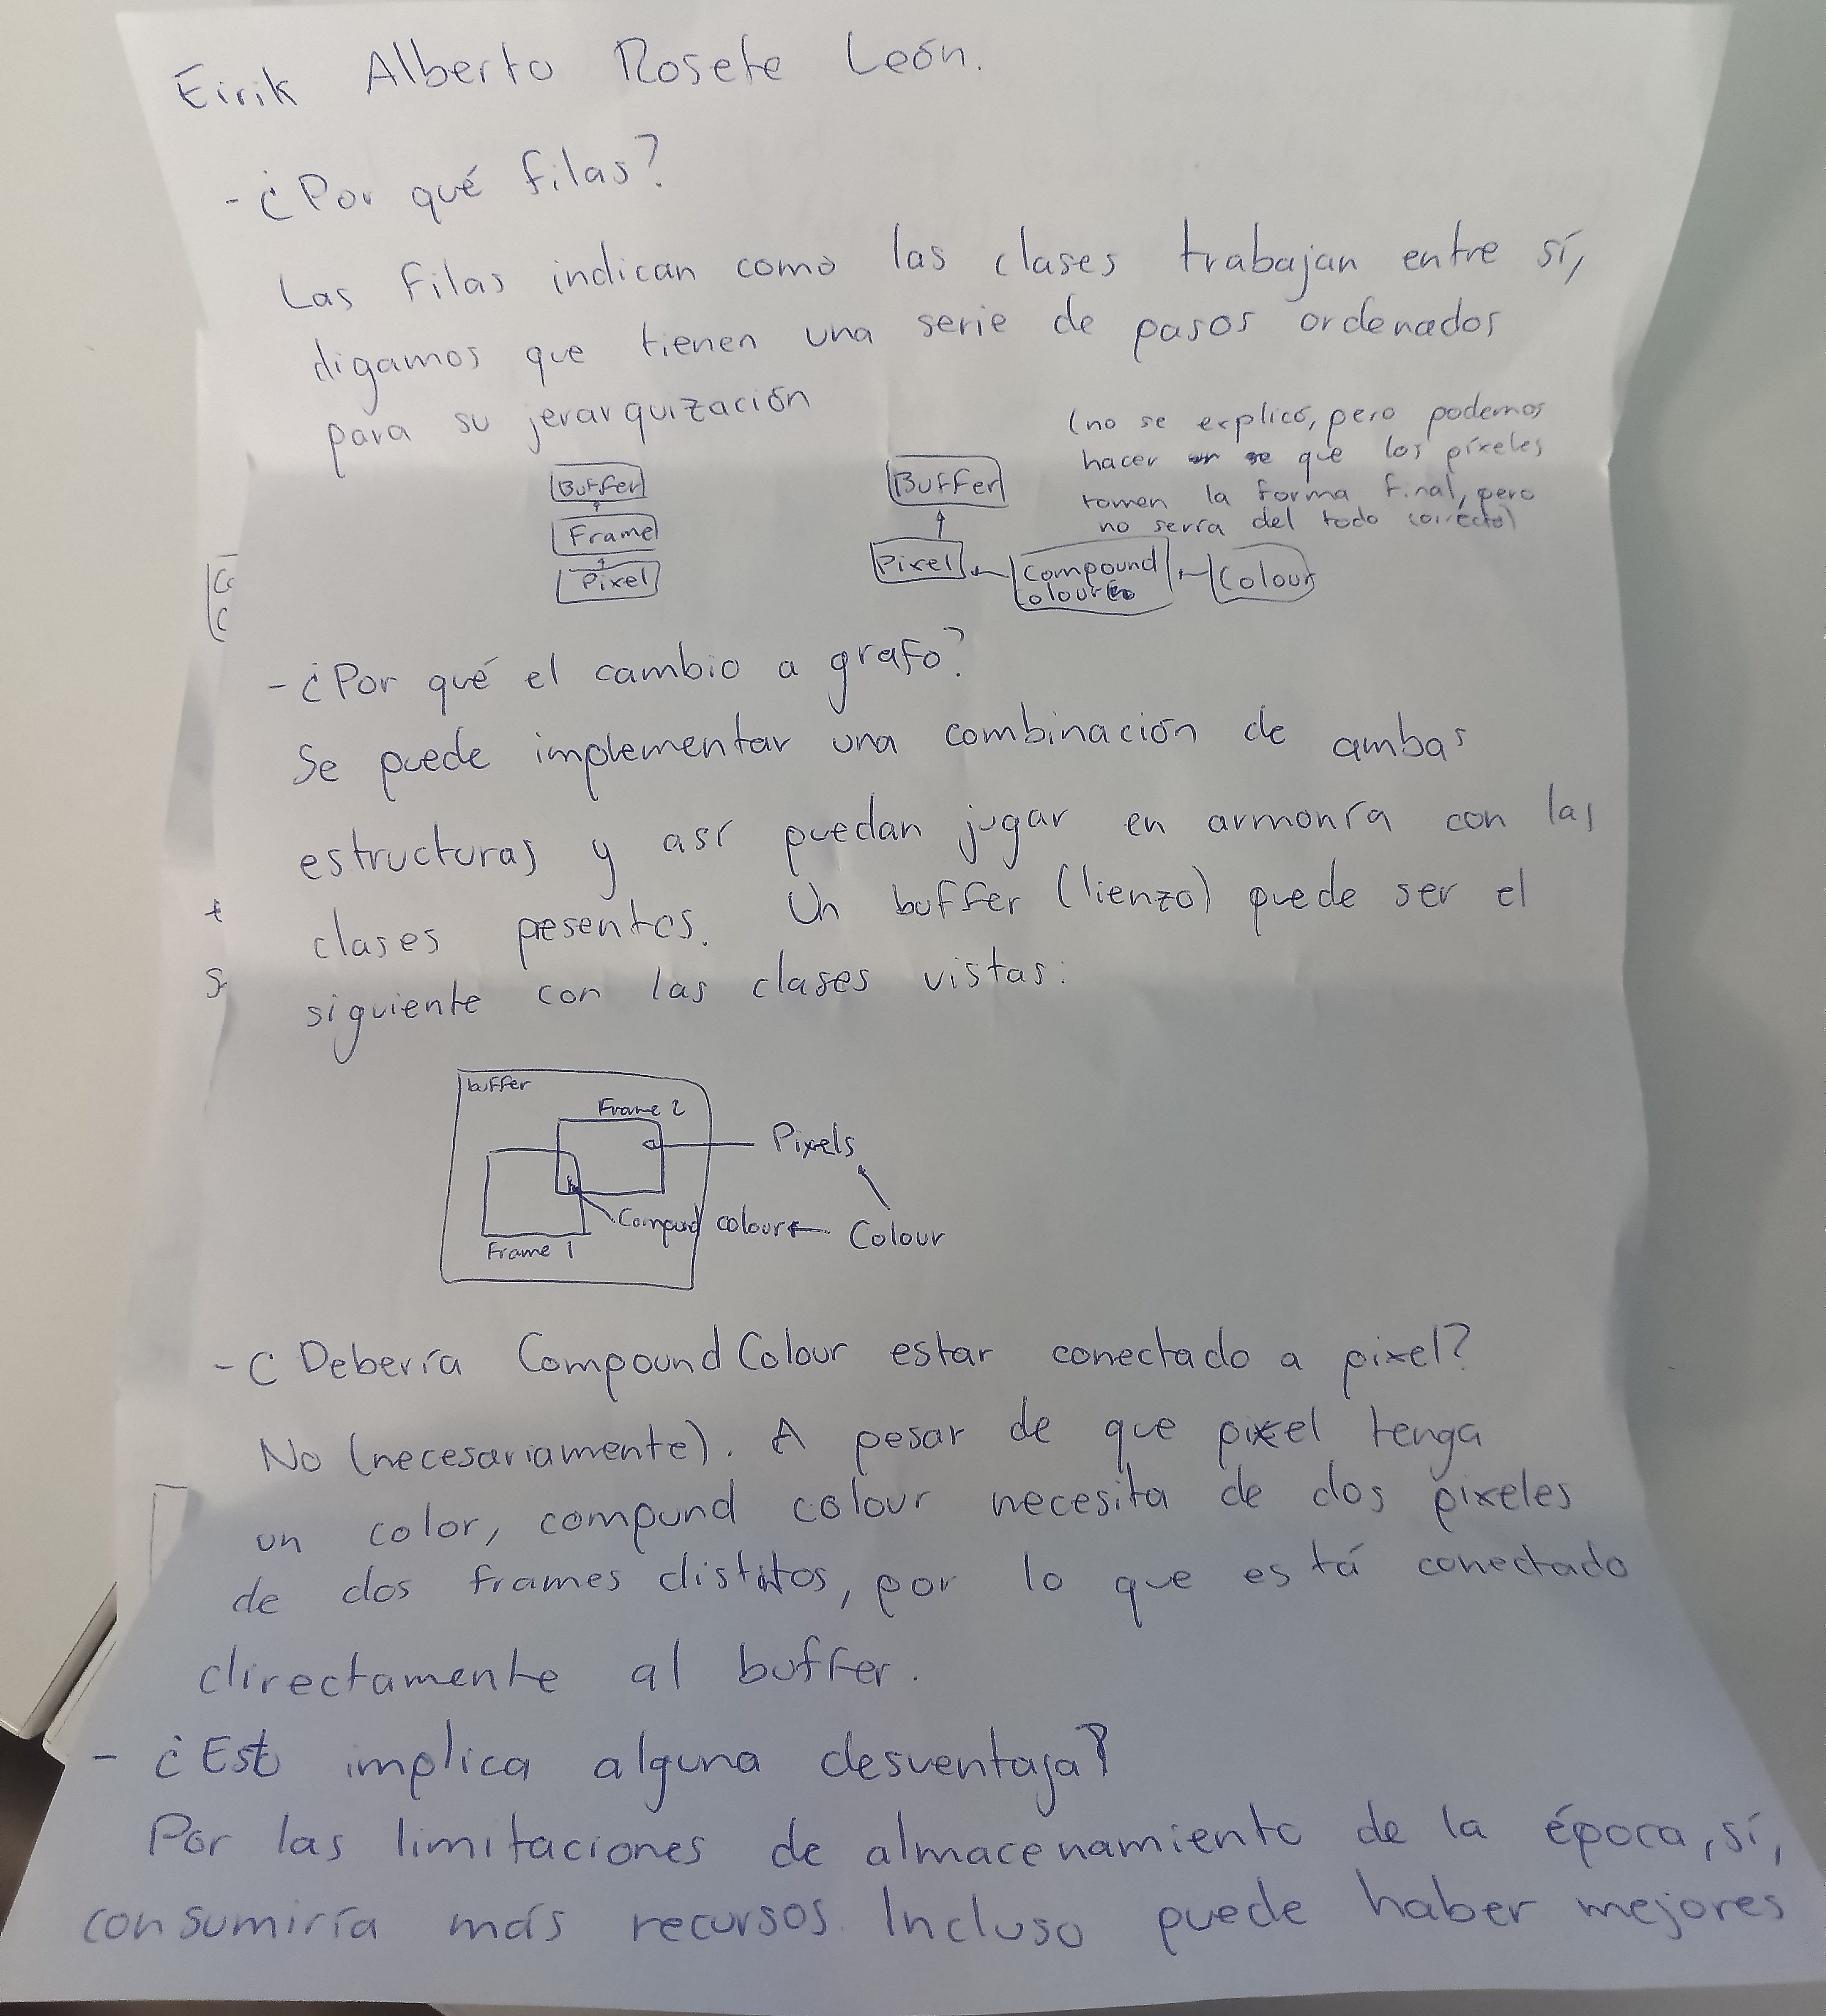 Eirik Alberto Rosete León.
- ¿Por qué filas?
Las filas indican como las clases trabajan entre sí,
digamos que tienen una serie de pasos ordenados
para su jerarquización
(no se explicó, pero podemos
hacer se que los píxeles
tomen la forma final, pero
no sería del todo correcto)
Buffer
Frame
Pixel
Buffer
Pixel
Compound
Colour
Colour
- ¿Por qué el cambio a grafo?
Se puede implementar una combinación de ambas
estructuras y así puedan jugar en armonía con las
clases presentes. Un buffer (lienzo) puede ser el
siguiente con las clases vistas:
buffer
Frame 2
Pixels
Compund colour
Colour
Frame 1
- ¿Debería CompoundColour estar conectado a pixel?
No (necesariamente). A pesar de que pixel tenga
un color, compund colour necesita de dos pixeles
de dos frames distintos, por lo que está conectado
directamente al buffer.
- ¿Esto implica alguna desventaja?
Por las limitaciones de almacenamiento de la época, sí,
consumiría más recursos. Incluso puede haber mejores